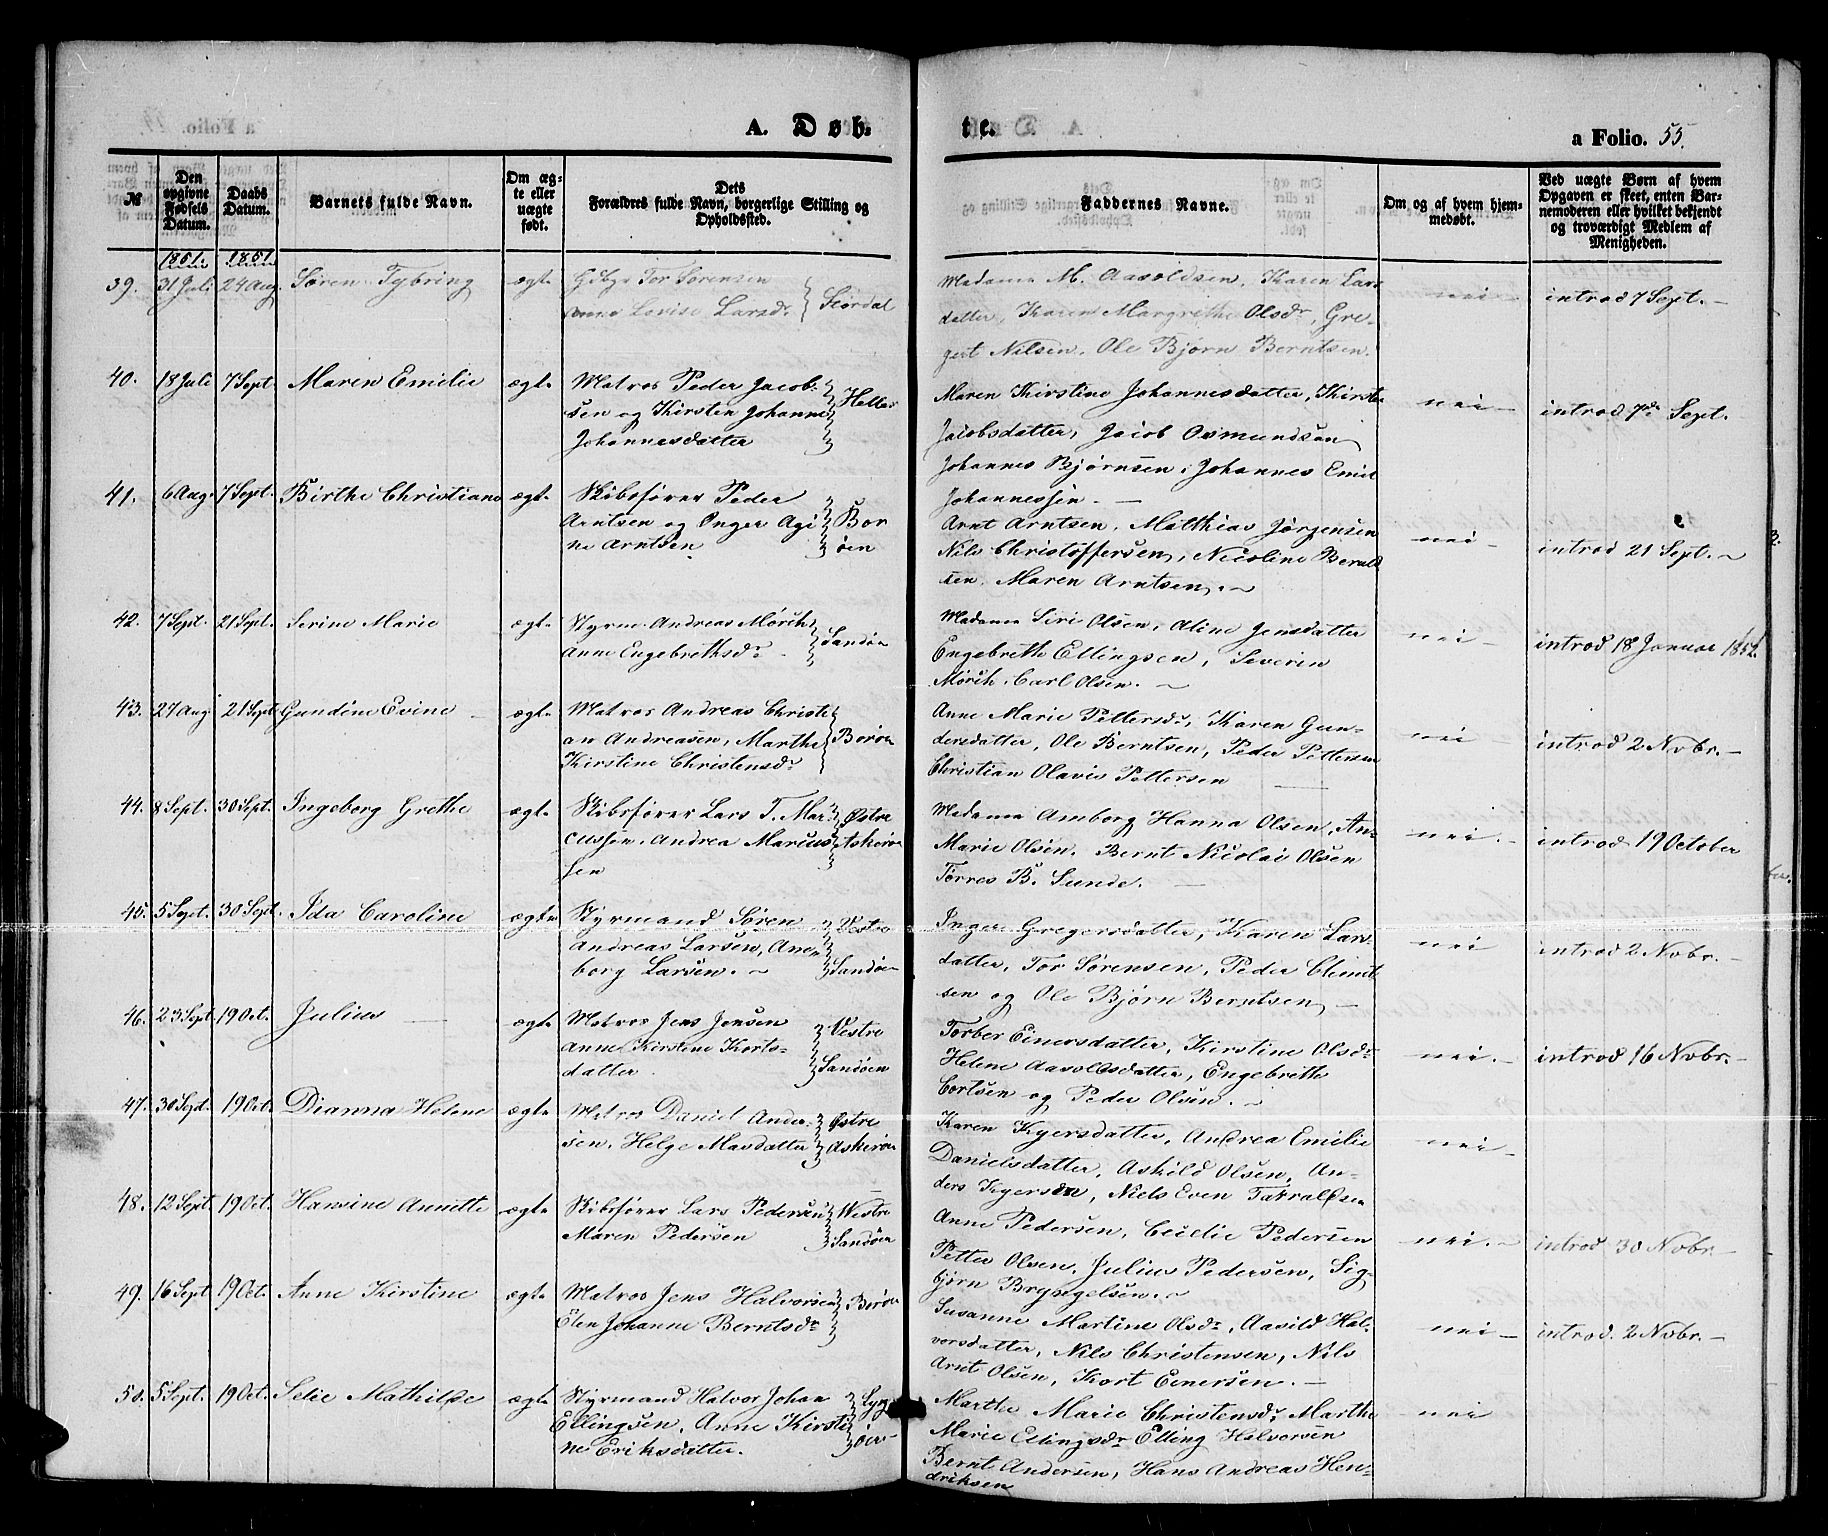 A. Døb-
te.
a Folio. 55.
№
Den opgivne Fødsels Datum.
Daabs Datum.
Barnets fulde Navn.
Om ægte eller uægte født.
Dets
Forældres fulde Navn, borgerlige Stilling og
Opholdssted.
Faddernes Navne.
Om og af hvem hjemmedøbt.
Ved uægte Børn af hvem
Opgaven er skeet, enten Bar-
nemoderen eller hvilket bekjendt
og troværdigt Medlem af
Menigheden.
1851. 1851.
39. 31 Juli 24 Aug. Søren Tybring ægte Gdbgr Tor Sørensen
Anna Lovise Larsdr. Stordal
Madama M. Aasoldsen, Karen Lars
datter, Karen Margrethe Olsdr, Gre-
gert Nilsen, Ole Bjørn Berntsen.
nei introd 7 Sept.
40. 18 Juli 7 Sept. Maren Emilie ægte Matros Peder Jacob-
sen og Kirsten Johanne
Johannesdatter
Maren Kirstine Johannesdatter, Kirste
Jacobsdatter, Jacob Osmundsen
Johannes Bjørnsen, Johannes Emil
Johannessen.
nei introd. 7de Sept.
41. 6 Aug. 7 Sept. Birthe Christiane ægte Skibsfører Peder
Arntsen og Inger Agi
ne Arntsen
Bor
øen
Arnt Arntsen, Matthias Jørgensen
Nils Christoffersen, Nicoline Berntd
sen, Maren Arntsen.
nei introd 21 Sept.
42. 7 Sept. 21 Sept. Serine Marie ægte Styrm. Andreas Mørch
Anne Engebrethsdr. Sandøe
Madama Siri Olsen, Aline Jensdatter
Engebreth Ellingsen, Severin
Mørch, Carl Olsen.
nei introd 18 Januar 1852.
43. 27 Aug. 21 Sept. Gundine Evine ægte Matros Andreas Christi
an Andreasen, Marthe
Kirstine Christensdr.
Borøe
Anne Marie Pettersdr, Karen Gun-
dersdatter, Ole Berntsen, Peder Pettersen
Christian Olavis Pettersen
nei introd 2 Nobr.
44. 8 Sept. 30 Sept. Ingeborg Grethe ægte Skibsfører Lars T. Mar-
cussen, Andrea Marcus
sen
Østre
Askerøe
Madama Amborg Hanna Olsen, An-
Marie Olsen, Bernt Nicolai Olsen
Torres B. Sunde.
nei. introd. 19 October
45. 5 Sept. 30 Sept. Ida Caroline ægte Styrmand Søren
Andreas Larsen, Ane
borg Larsen.
Vestre
Sandøen
Inger Gregersdatter, Karen Lars-
datter, Tor Sørensen, Peder Clemet
sen og Ole Bjørn Berntsen
nei introd 2 Nobr.
46. 23 Sept. 19 Oct. Julius ægte Matros Jens Jensen
Anne Kirstine Korts-
datter.
Vestre
Sandøen
Torber Einersdatter, Kirstine Olsdr
Helene Aasoldsdatter, Engebrethe
Cortsen og Peder Olsen.
nei. introd 16 Nobr.
47. 30 Sept. 19 Oct. Dianna Helene ægte Matros Daniel Ander-
sen, Helge Masdatter
Østre
Askerøe
Karen Kyersdatter, Andrea Emilie
Danielsdatter, Askild Olsen, An-
ders Kyersen, Niels Even Taraldsen
nei
48. 12 Sept. 19 Oct. Hansine Annette ægte Skibsfører Lars Pedersen
Maren Pedersen
Westre
Sandøen
Anne Pedersen, Cecilie Pedersen
Petter Olsen, Julius Pedersen, Sig-
bjørn Bryngelsen.
nei. introd 30 Nobr
49. 16 Sept. 19 Oct. Anne Kirstine ægte Matros Jens Halvorsen
Elen Johanne Berntsdr.
Borøe
Susanne Martine Olsdr, Aasild Hal-
vorsdatter, Nils Christensen, Nils
Arnt Olsen, Kort Einersen.
nei introd. 2 Nobr.
50. 5 Sept. 19 Oct. Selie Mathilde ægte Styrmand Halvor Johan
Ellingsen, Anne Kirsti
ne Eriksdatter.
Lyng
øer
Marthe Marie Christensdr, Marthe
Marie Ellingsdr, Elling Halvorsen
Bernt Andersen, Hans Andreas Hen-
driksen
nei